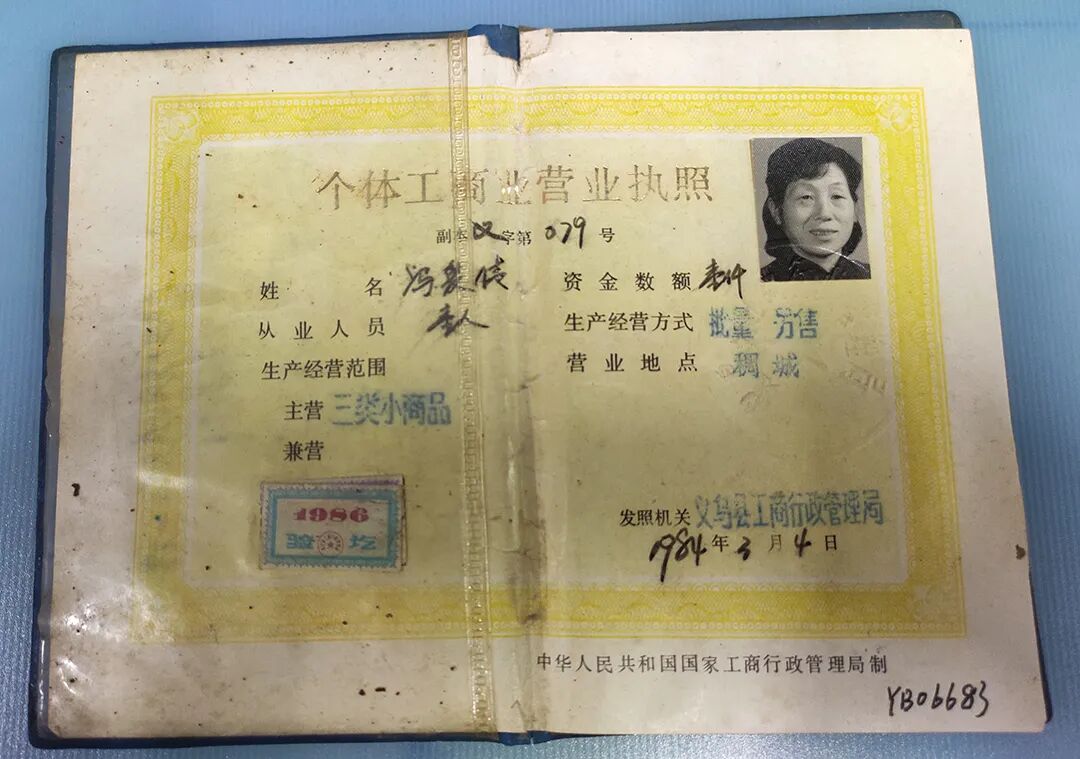 个体工商业营业执照
副本义字第079号
姓名 冯爱倩
从业人员 本人
生产经营范围
主营 三类小商品
兼营
1986
验 讫
资金数额
生产经营方式 批量 另售
营业地点 稠城
发照机关 义乌县工商行政管理局
1984年3月4日
中华人民共和国国家工商行政管理局制
YB06683